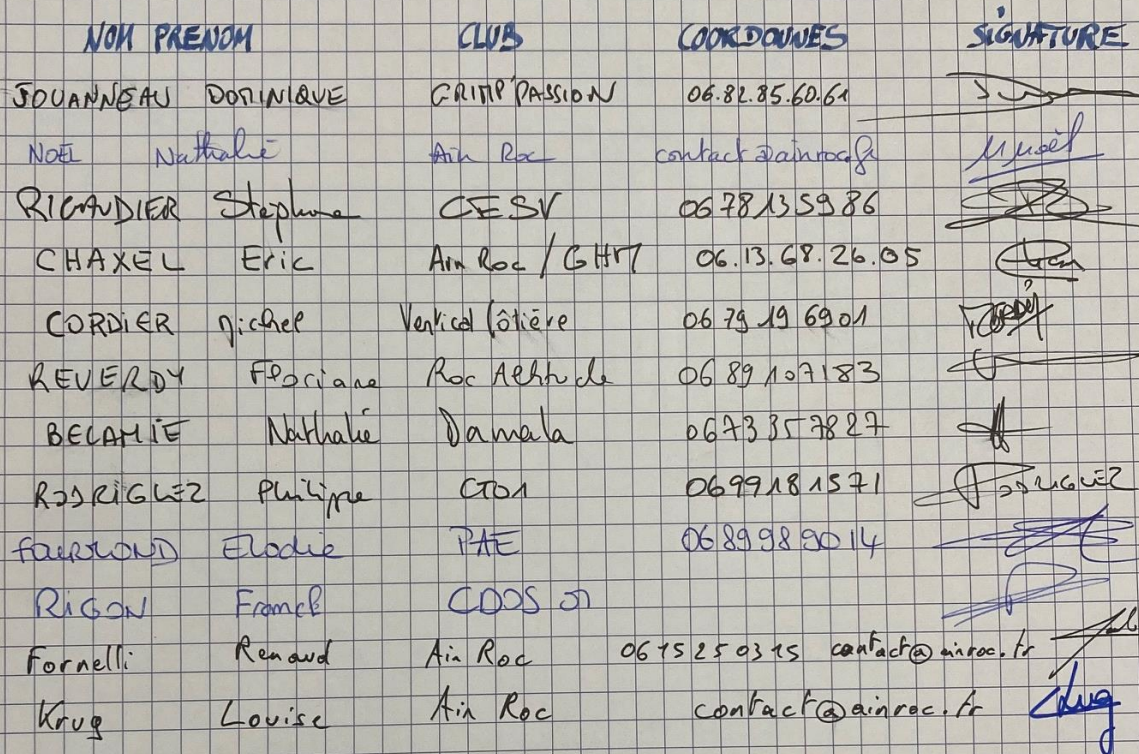 NOM PRENOM CLUB COORDONNES SIGNATURE
JOUANNEAU DOMINIQUE GRIMP'PASSION 06.82.85.60.61
NOËL Nathalie Ain Roc contact@ainroc.fr MNoël
RIGAUDIER Stéphane CESV 0678135986
CHAXEL Eric Ain Roc / GHM 06.13.68.26.05
CORDIER Michel Vertical Côtière 06 79 19 6901
REVERDY Floriane Roc Altitude 0689107183
BECAMIE Nathalie Damala 0673357827
RODRIGUEZ Philippe CT01 0699181571 RODRIGUEZ
Elodie PAE 0689989014
RIGON Franck CDOS 01
Fornelli Renaud Ain Roc 0615250315 contact@ainroc.fr
Krug Louise Ain Roc contact@ainroc.fr Krug